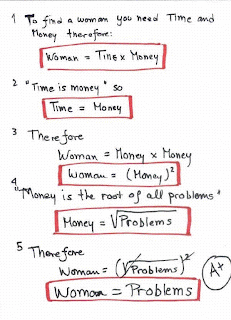 1 To find a woman you need Time and
Money therefore:
Woman = Time x Money
2 "Time is money" so
Time = Money
3 Therefore
Woman = Money x Money
Woman = (Money)²
4 "Money is the root of all problems"
Money = √Problems
5 Therefore
Woman = (√Problems)²
Woman = Problems
A+